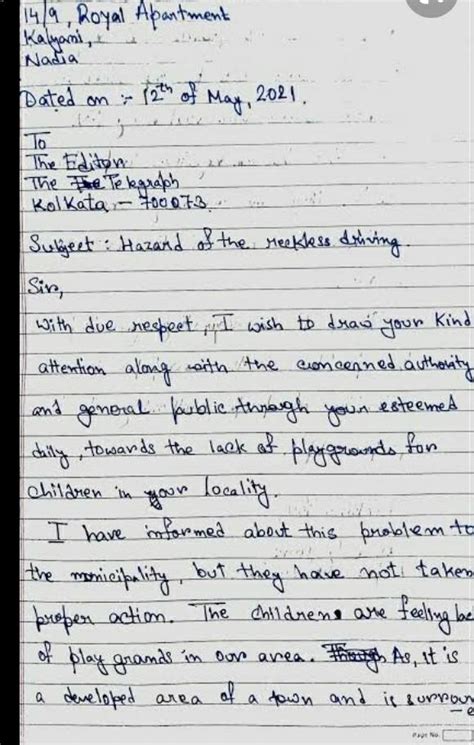 14/9, Royal Apartment
Kalyani,
Nadia
Dated on :- 12th of May, 2021.
To
The Editor
The The Telegraph
Kolkata - 700073
Subject: Hazard of the reckless driving.
Sir,
With due respect, I wish to draw your kind
attention along with the concerned authority
and general public through your esteemed
daily, towards the lack of playgrounds for
children in your locality.
I have informed about this problem to
the monicipality, but they have not taken
proper action. The childrens are feeling
of play grands in our area. Though As, it is
a developed area of a town and is surroun
Page No.